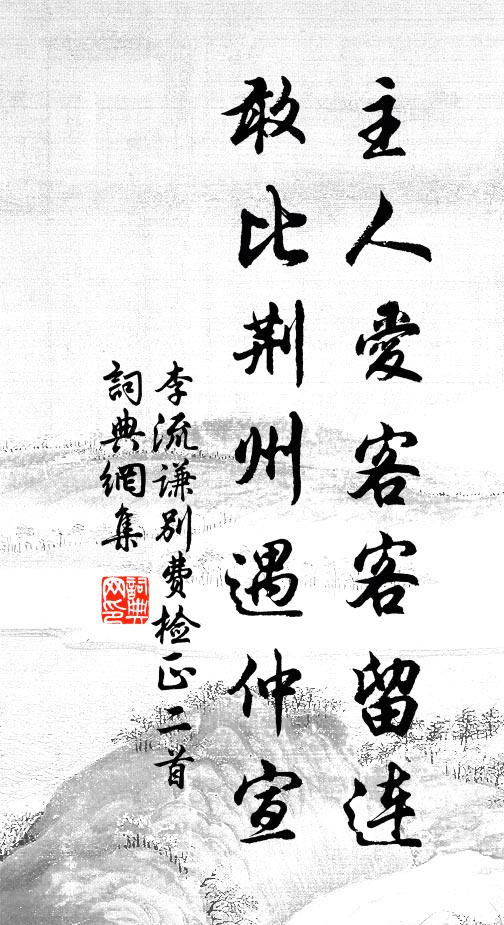 主人愛客客留連
敢比荆州遇仲宣
李流谦别費檢正二首
詞典網集
詞典网印